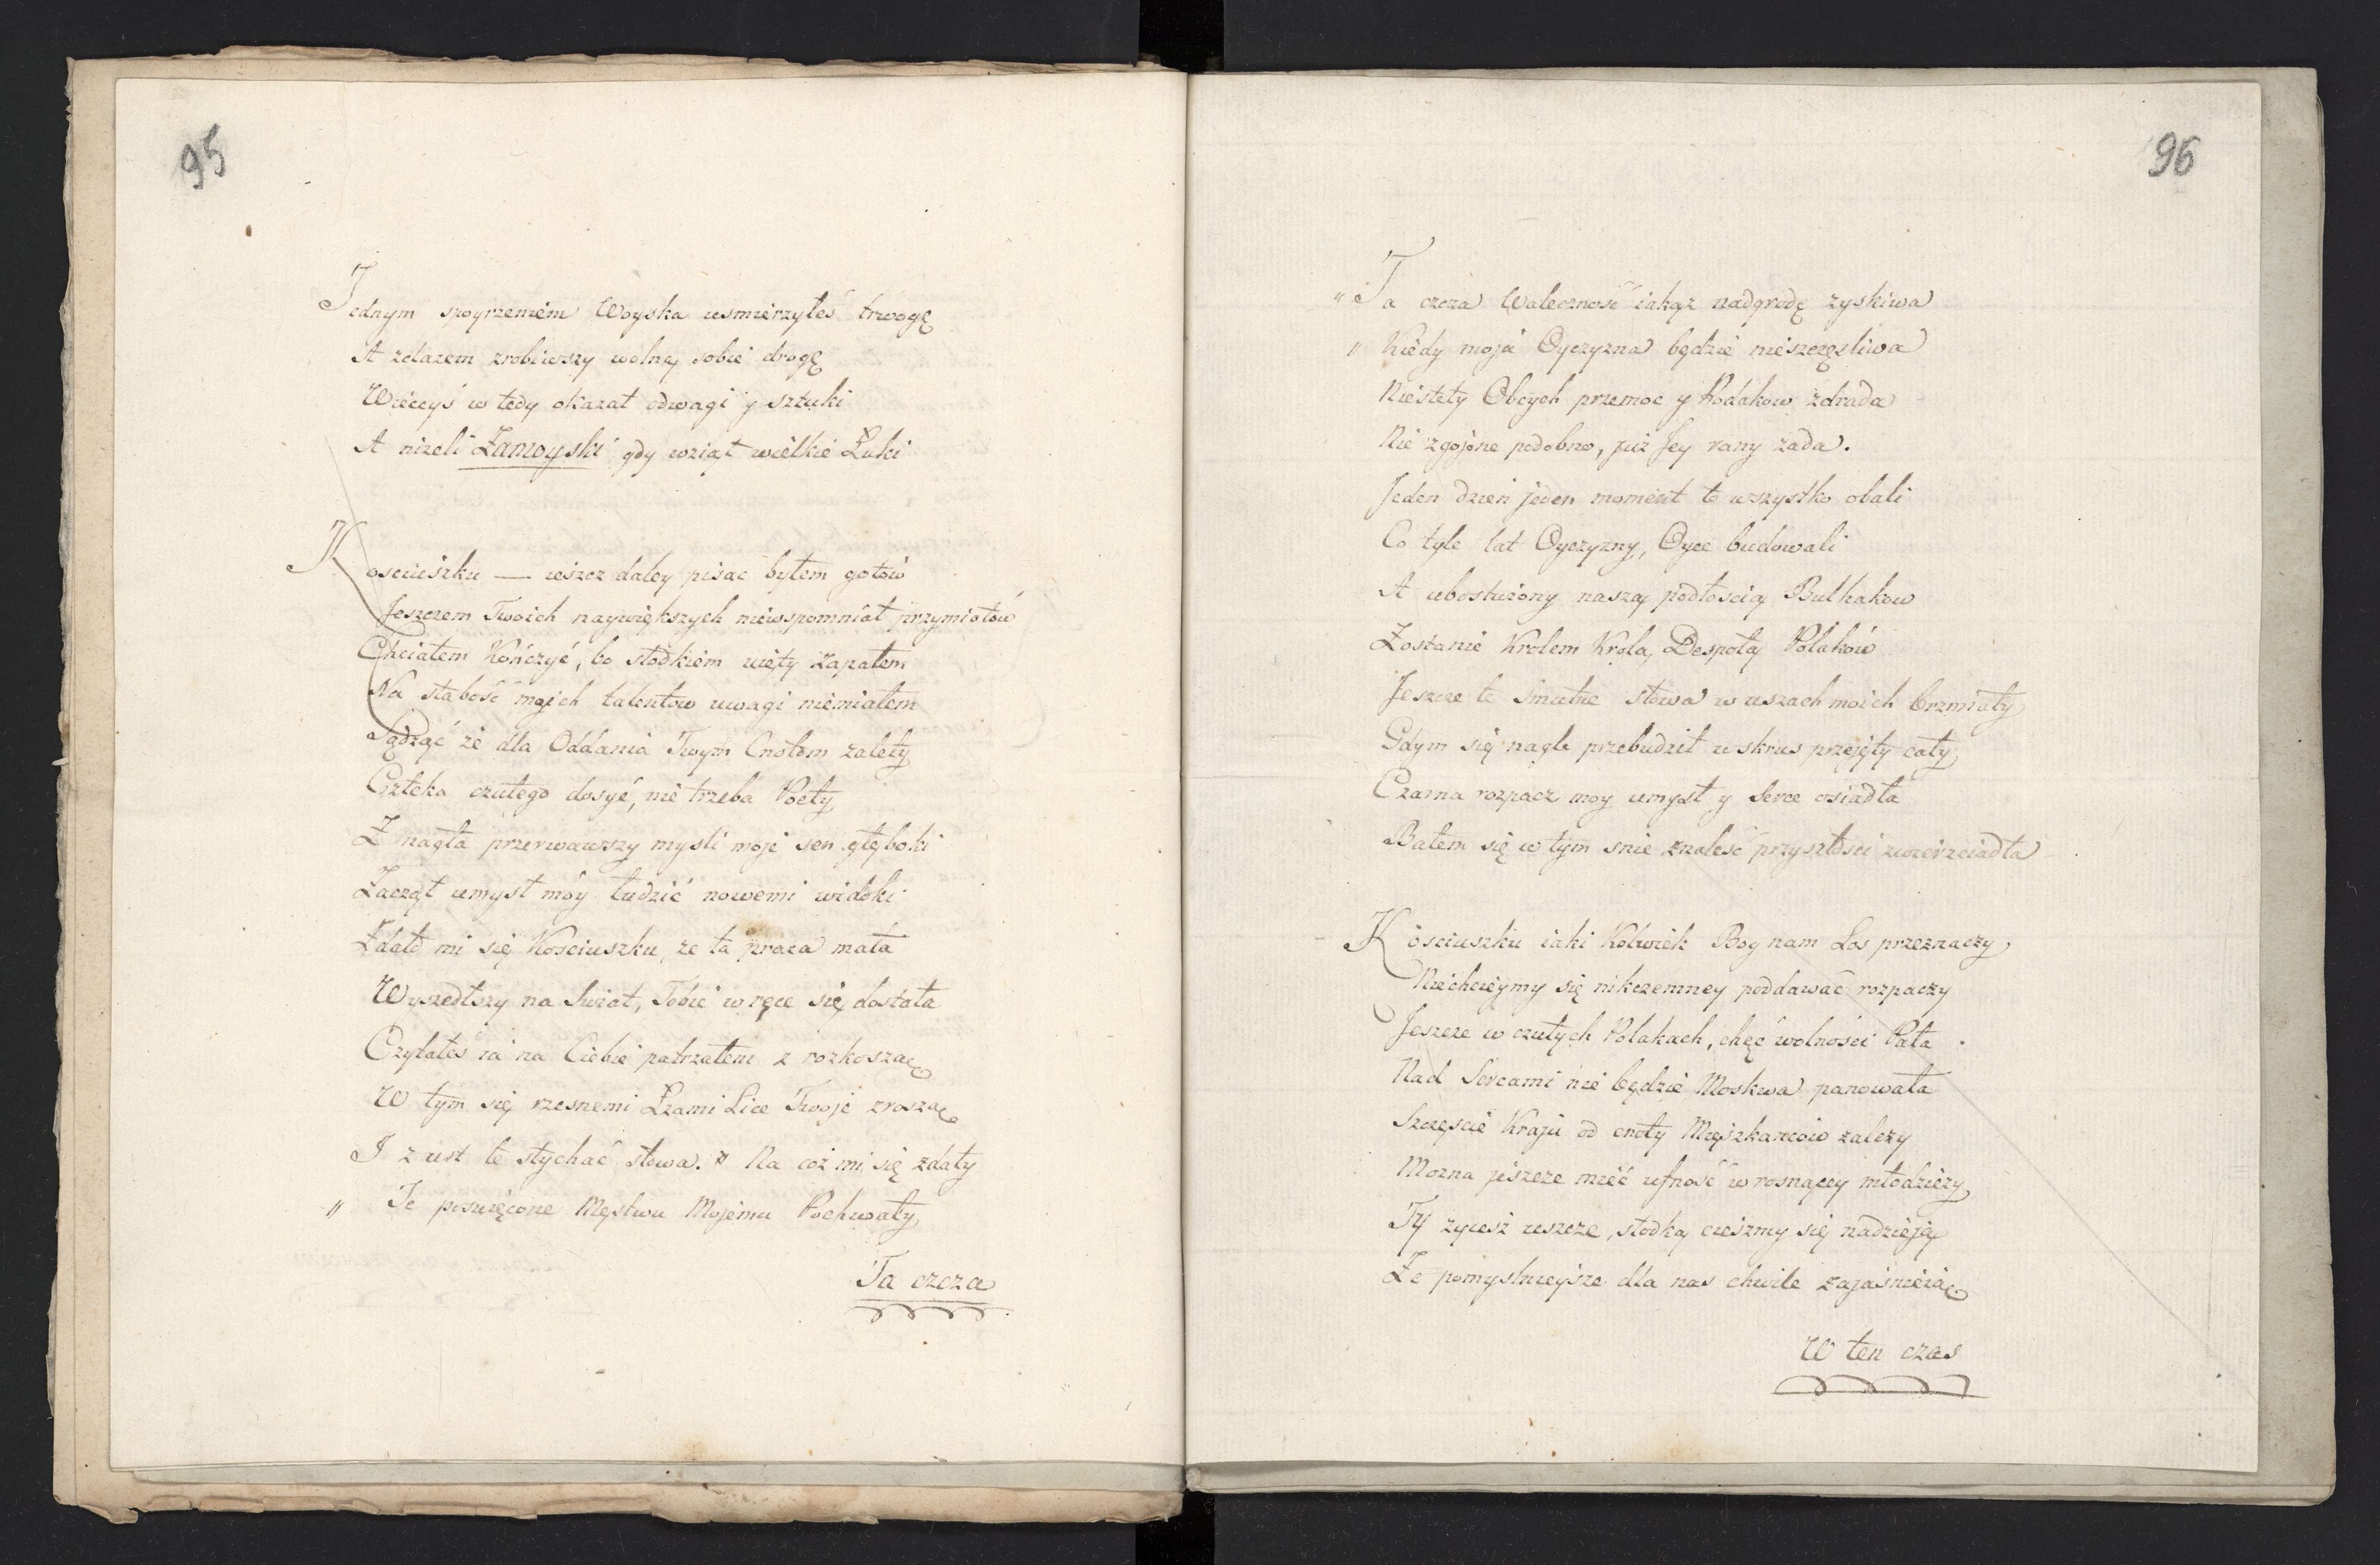 95
Jednym spoyrzeniem Woyska usmierzyłeś trwogę
A żelazem zrobiwszy wolną sobie drogę
Więceyś w tedy okazał odwagi y sztuki
A niżeli Zamoyski gdy wziął wielkie Łuki
Kosciuszku — ieszcz daley pisac byłem gotów
Jeszczem Twoich naywiększych niewspomniał przymiotów
Chciałem Kończyć, bo słodkiem uięty zapałem
Na słabość mojch talentow uwagi niemiałem
Sądząć że dla Oddania Twym Cnotom zalety
Człeka czułego dosyć, nie trzeba Poety
Z nagła przerwawszy mysli moje sen głęboki
Zaczął umysł móy łudzić nowemi widoki
Zdało mi się Kosciuszku, że ta praca mała
Wyszedłszy na Swiat, Tobie w ręce się dostała
Czytałeś ia na Ciebie patrzałem z rozkoszą
W tym się rzesnemi Łzami Lice Twoje zroszą
I z ust te słychać słowa. " Na coż mi się zdały
" Te poswięcone Męstwu Mojemu Pochwały
Ta czcza
96
" Ta czcza Waleczność iakąż nadgrodę zyskiwa
" Kiedy moja Oyczyzna będzie nieszczęsliwa
Niestety Obcych przemoc y Rodakow zdrada
Nie zgojone podobno, już Jey rany zada.
Jeden dzień jeden moment to wszystko obali
Co tyle lat Oyczyzny, Oyce budowali
A ubostwiony naszą podłoscią Bulhakow
Zostanie Krolem Krola, Despotą Polaków
Jeszcze te Smutne słowa w uszach moich brzmiały
Gdym się nagle przebudził w skrus przejęty cały
Czarna rozpacz moy umysł y Serce osiadła
Bałem się w tym snie znaleść przyszłosci zwierzciadła
Kosciuszku iaki Kolwiek Bog nam Los przeznaczy
Niechcieymy się nikczemney poddawać rozpaczy
Jeszcze w czułych Polakach, chęć wolności Pała.
Nad Sercami nie będzie Moskwa panowała
Szczęscie Kraju od cnoty Mięszkańców zależy
Mozna jeszcze mieć ufność w rosnącey młodzieży
Ty zyiesz ieszcze, słodką cieszmy się nadzieją
Że pomyslnieysze dla nas chwile zajaśnieią
W ten czas